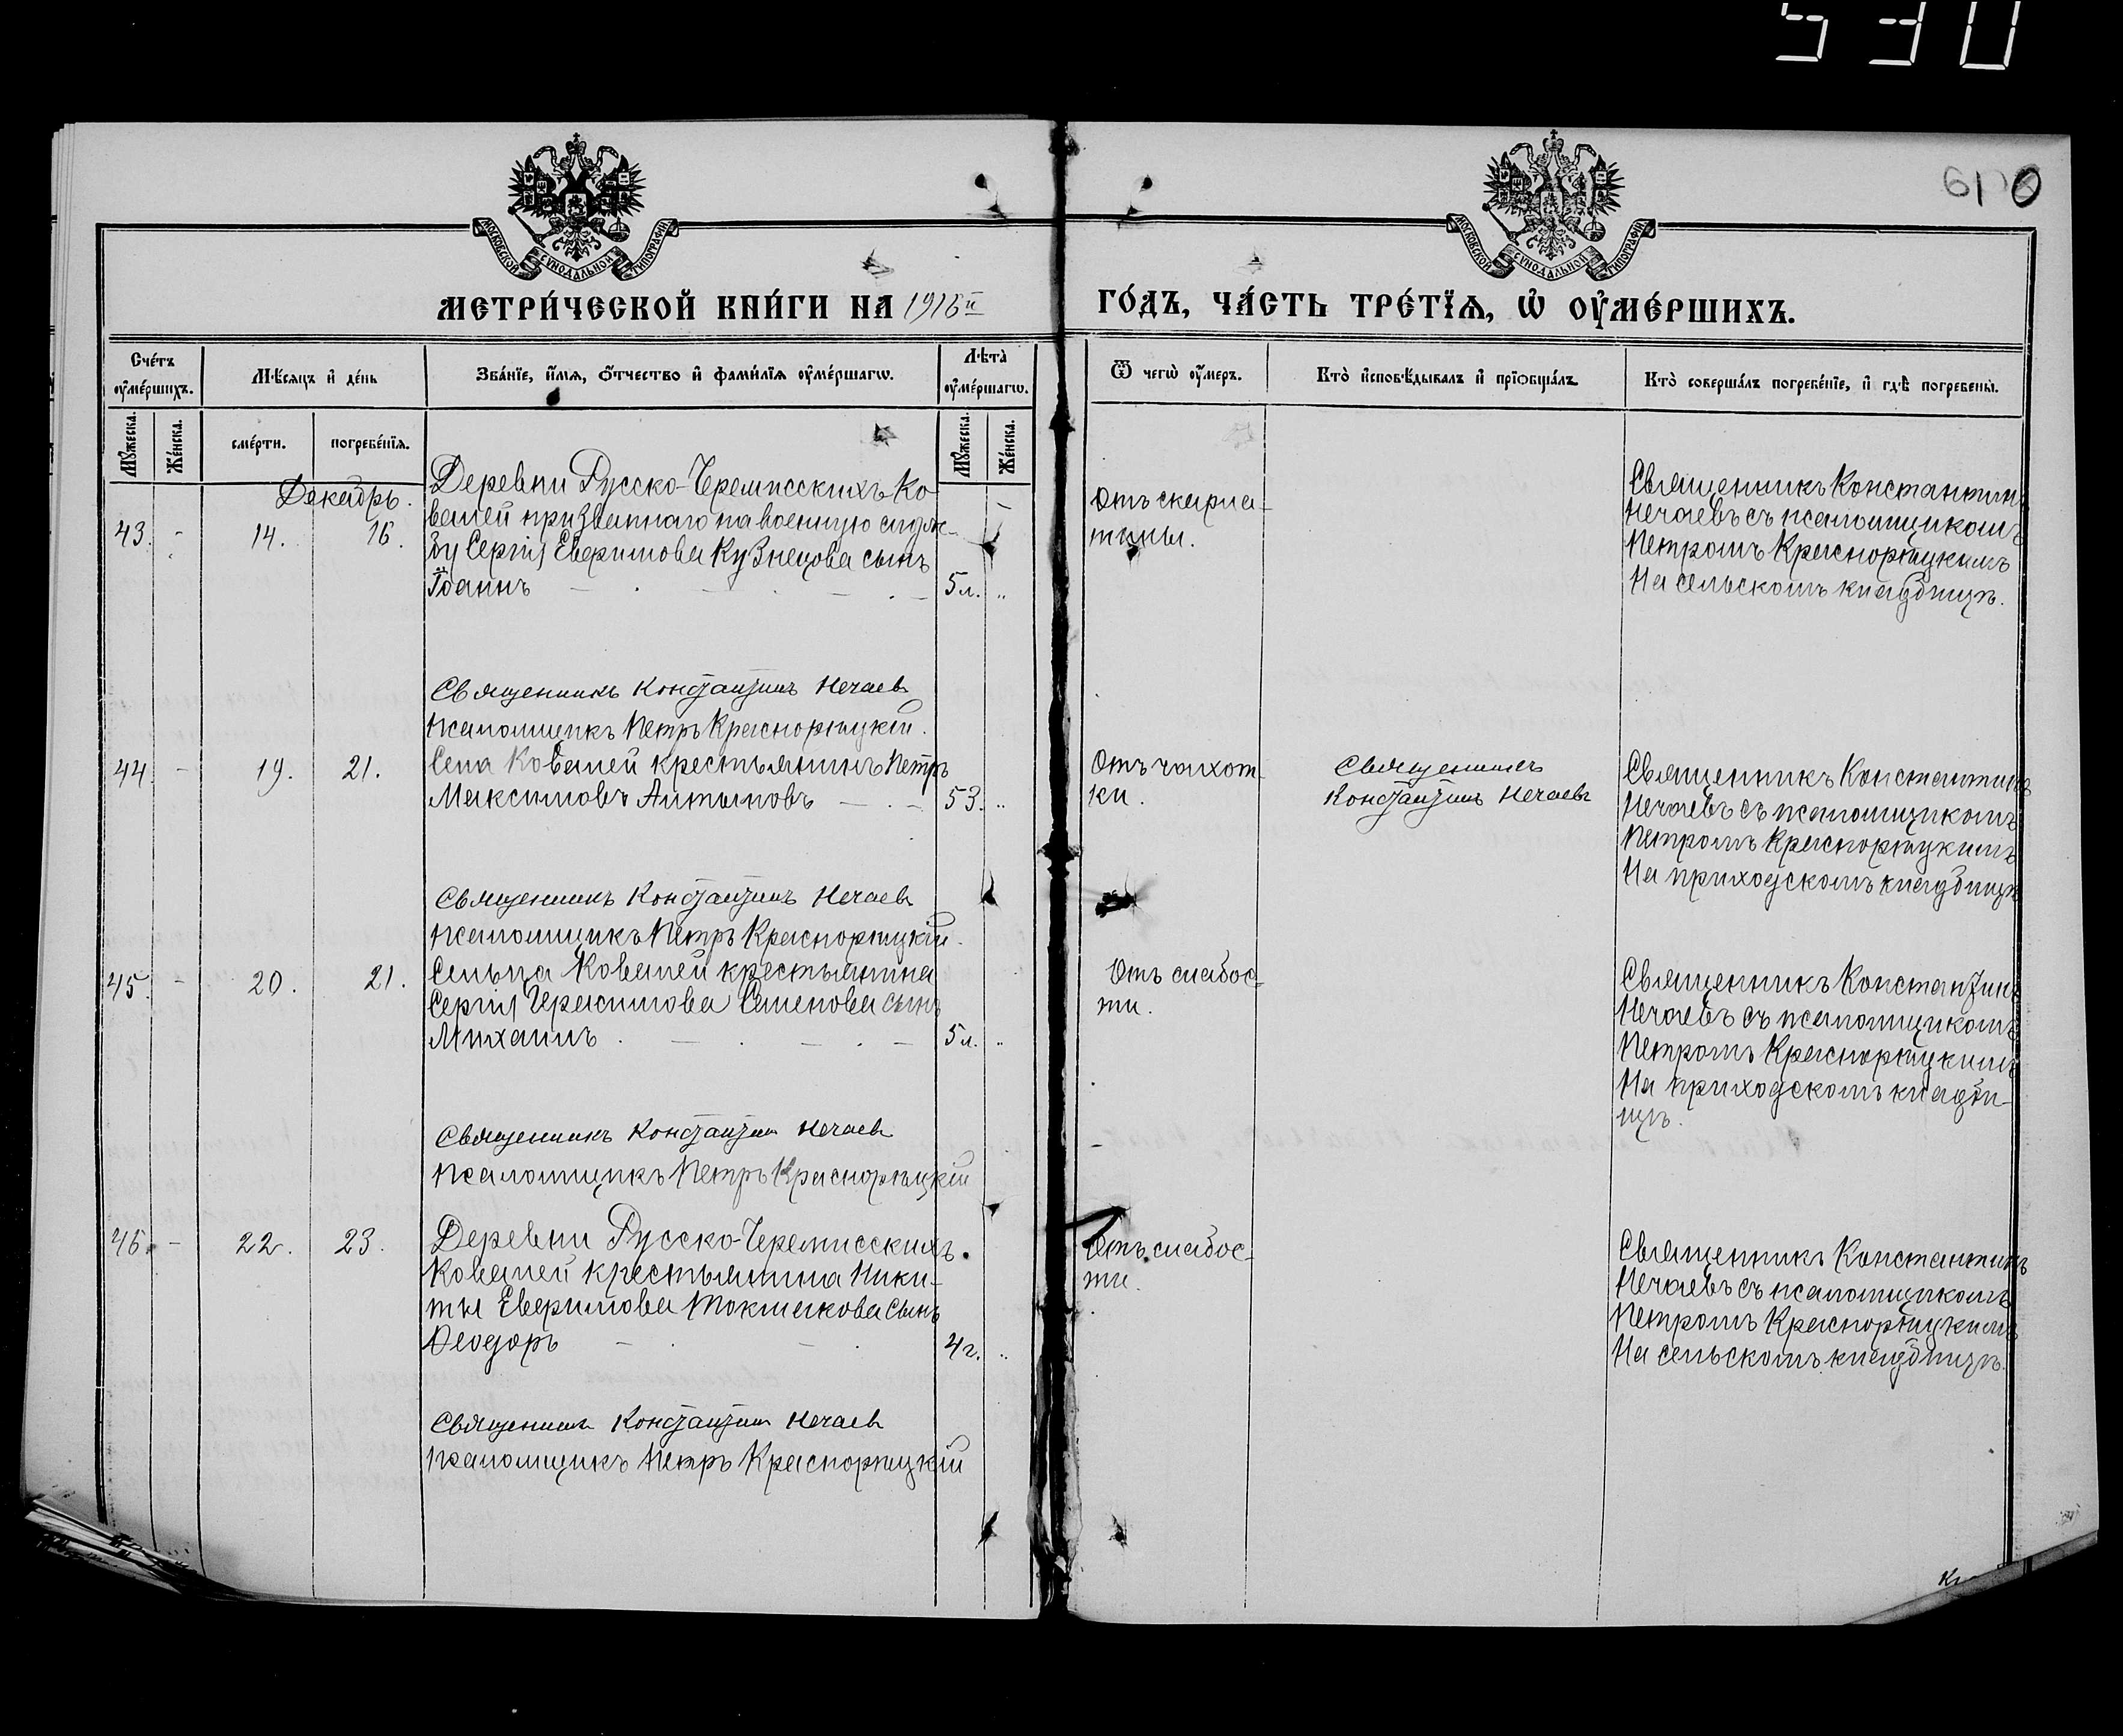 530
610
МОСКОВСКОЙ СѴНОДАЛЬНОЙ ТИПОГРАФІИ
МОСКОВСКОЙ СѴНОДАЛЬНОЙ ТИПОГРАФІИ
МЕТРИ́ЧЕСКОЙ КНИ́ГИ НА 1916й ГО́ДЪ, ЧА́СТЬ ТРЕ́ТЇѦ, Ѡ҆ ОУ҆МЕ́РШИХЪ.
Сче́тъ оу҆ме́ршихъ.
Мѣ́сяцъ и҆ де́нь
Зва́нїе, и҆́мѧ, ѻ҆́тчество и҆ фами́лїѧ оу҆ме́ршагѡ.
Лѣ́та оу҆ме́ршагѡ.
Ѿ чегѡ̀ оу҆́меръ.
Кто̀ и҆сповѣ́дывалъ и҆ прїѡбща́лъ
Кто̀ соверша́лъ погребе́нїе, и҆ гдѣ̀ погребены̀.
Мꙋ́жеска.
Же́нска.
сме́рти.
погребе́нїѧ.
Мꙋ́жеска.
Же́нска.
Декабрь.
43. - 14. 16.
Деревни Русско-Черемисскихъ Ко-
валей призваннаго на военную служ-
бу Сергія Евфимова Кузнецова сынъ
Іоаннъ 5 л. „
Отъ скарла-
тины.
Священникъ Константинъ
Нечаевъ съ псаломщикомъ
Петромъ Краснорѣцкимъ
На сельскомъ кладбищѣ.
Священникъ Константинъ Нечаевъ
Псаломщикъ Петръ Краснорѣцкій.
44. - 19. 21.
Села Ковалей крестьянинъ Петръ
Максимовъ 53. „
Отъ чахот-
ки.
Священникъ
Константинъ Нечаевъ
Священникъ Константинъ
Нечаевъ съ псаломщикомъ
Петромъ Краснорѣцкимъ
На приходскомъ кладбищѣ
Священникъ Константинъ Нечаевъ
Псаломщикъ Петръ Краснорѣцкій.
45. - 20. 21.
Сельца Ковалей крестьянина
Сергія Герасимова Семенова сынъ
Михаилъ 5 л. „
Отъ слабос-
ти.
Священникъ Константинъ
Нечаевъ съ псаломщикомъ
Петромъ Краснорѣцкимъ
На приходскомъ кладби-
щѣ.
Священникъ Константинъ Нечаевъ
Псаломщикъ Петръ Краснорѣцкій
46. - 22. 23.
Деревни Русско-Черемисскихъ
Ковалей крестьянина Ники-
ты Евфимова Токмакова сынъ
Ѳеодоръ 4 г. „
Отъ слабос-
ти.
Священникъ Константинъ
Нечаевъ съ псаломщикомъ
Петромъ Краснорѣцкимъ
На сельскомъ кладбищѣ.
Священникъ Константинъ Нечаевъ
Псаломщикъ Петръ Краснорѣцкій